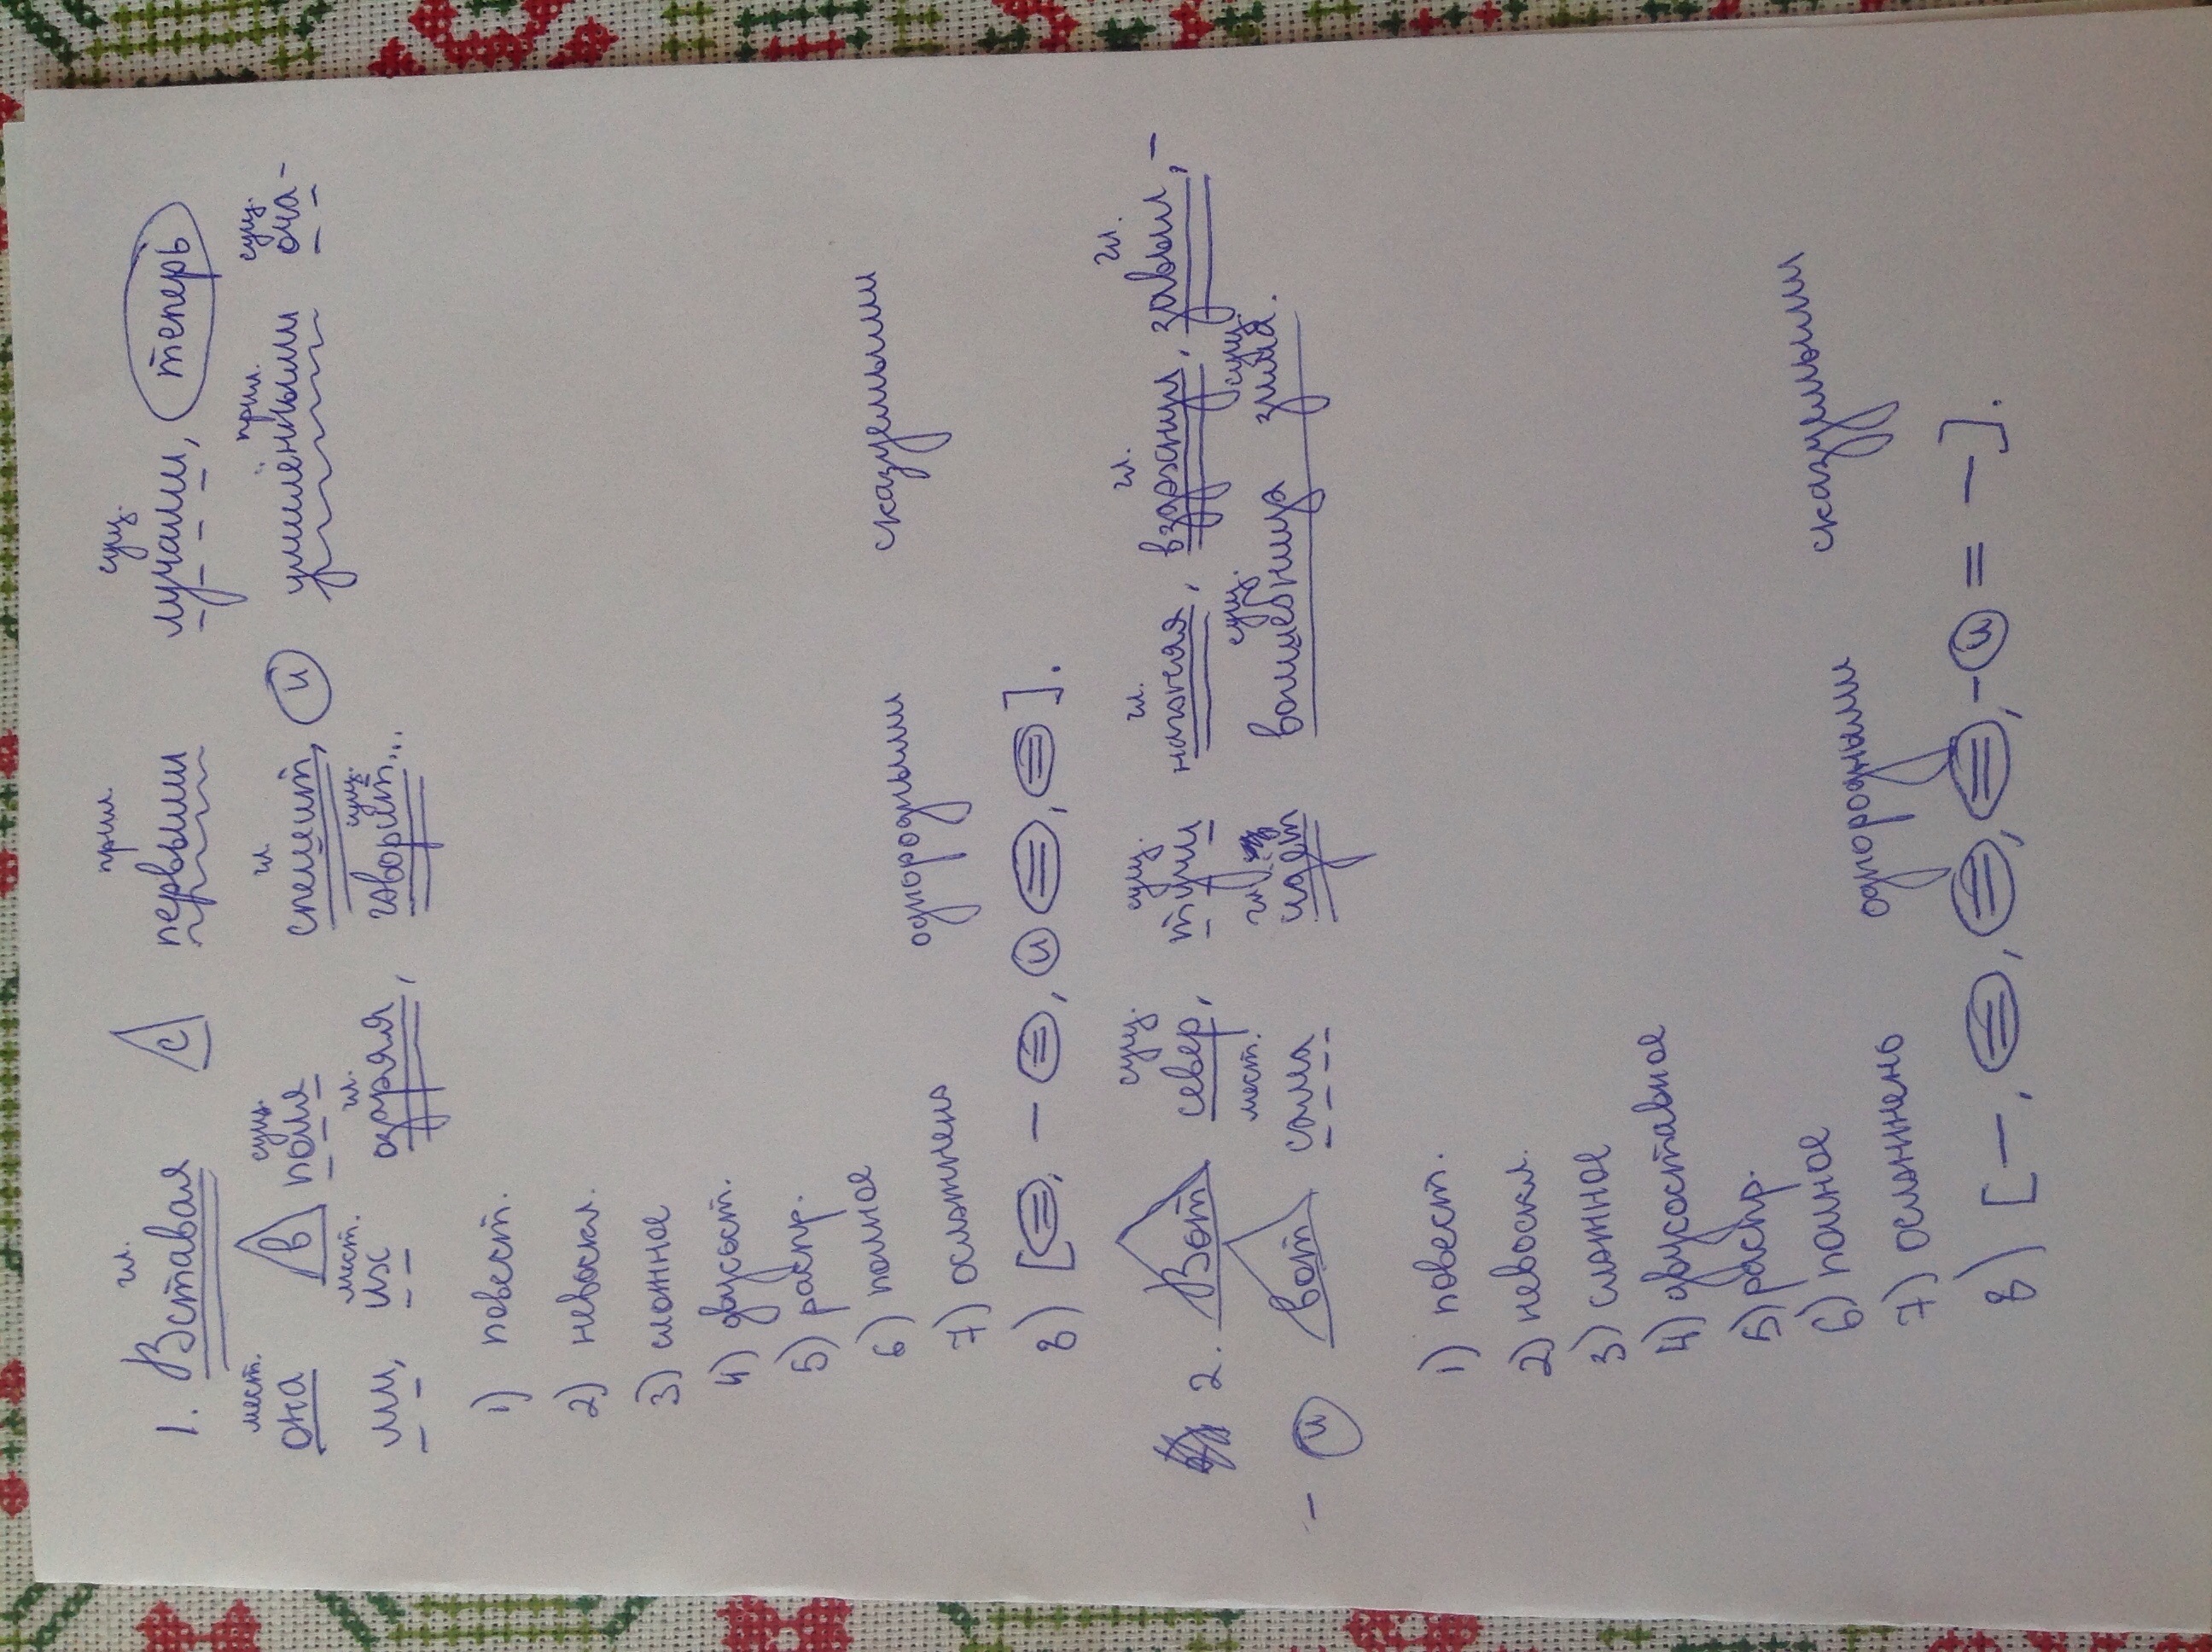 гл. прил. сущ.
1. Вставая с первыми лучами, теперь
мест. сущ. гл. прил. сущ.
она в поля спешит, и умилёнными оча-
мест. гл. сущ.
ми, их озаряя, говорит...
1) повест.
2) невоскл.
3) сложное
4) двусост.
5) распр.
6) полное
7) осложнено однородными сказуемыми
8) [=, – =, и =, =].
сущ. сущ. гл. гл. гл.
2. Вот север, тучи нагоняя, взаржнул, завыл, –
мест. гл. сущ. сущ.
– и вот сама идет волшебница зима.
1) повест.
2) невоскл.
3) сложное
4) двусоставное
5) распр.
6) полное
7) осложнень однородными сказуемыми
8) [–, =, =, =, – и = –].